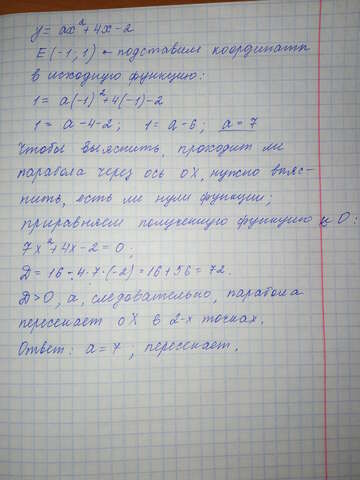 y = ax²+4x-2
E (-1; 1) - подставим координаты
в исходную функцию:
1 = a(-1)²+4(-1)-2
1 = a-4-2; 1 = a-6; a = 7
Чтобы выяснить, проходит ли
парабола через ось OX, нужно выяс-
нить, есть ли нули функции;
приравняем полученную функцию к 0:
7x²+4x-2=0;
D = 16-4·7·(-2)=16+56=72.
D>0, а, следовательно, парабола
пересекает OX в 2-х точках.
Ответ: a=7; пересекает.